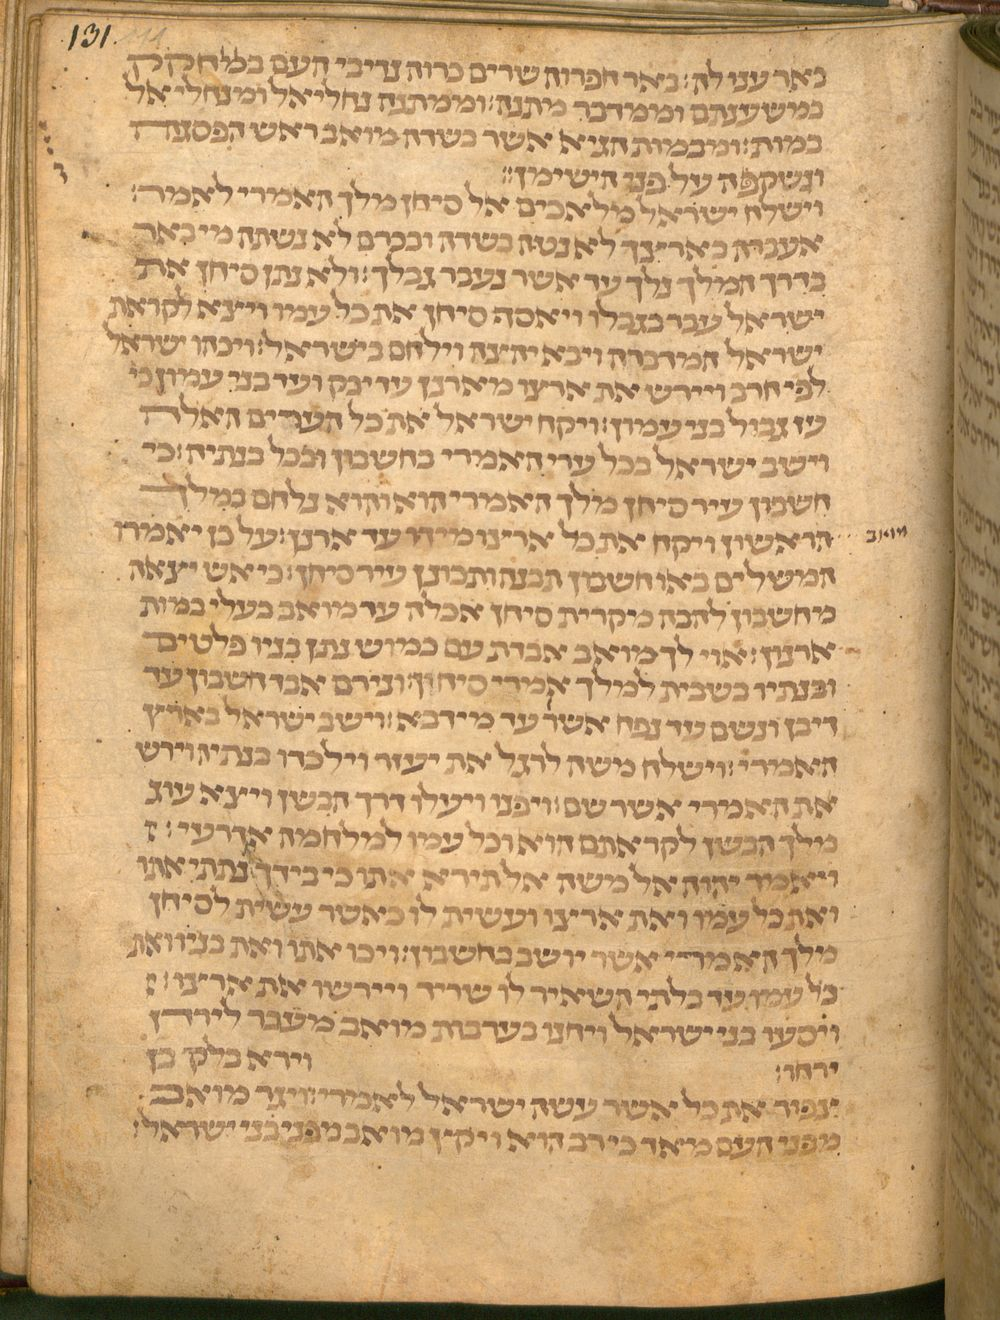 131
באר ענו לה׃ באר חפרוה שרים כרוה נדיבי העם במחקק
במשענתם וממדבר מתנה׃ וממתנה נחליאל ומנחליאל
במות׃ ומבמות הגיא אשר בשדה מואב ראש הפסגה
ונשקפה על פני הישימון׃
וישלח ישראל מלאכים אל סיחן מלך האמרי לאמר׃
אעברה בארצך לא נטה בשדה ובכרם לא נשתה מי באר
בדרך המלך נלך עד אשר נעבר גבלך׃ ולא נתן סיחן את
ישראל עבר בגבלו ויאסף סיחן את כל עמו ויצא לקראת
ישראל המדברה ויבא יהצה וילחם בישראל׃ ויכהו ישראל
לפי חרב ויירש את ארצו מארנן עד יבק ועד בני עמון כי
עז גבול בני עמון׃ ויקח ישראל את כל הערים האלה
וישב ישראל בכל ערי האמרי בחשבון ובכל בנתיה׃ כי
חשבון עיר סיחן מלך האמרי הוא והוא נלחם במלך
מואב
הראשון ויקח את כל ארצו מידו עד ארנן׃ על כן יאמרו
המשלים באו חשבון תבנה ותכונן עיר סיחן׃ כי אש יצאה
מחשבון להבה מקרית סיחן אכלה ער מואב בעלי במות
ארנון׃ אוי לך מואב אבדת עם כמוש נתן בניו פלטים
ובנתיו בשבית למלך אמרי סיחון׃ ונירם אבד חשבון עד
דיבן ונשם עד נפח אשר עד מידבא׃ וישב ישראל בארץ
האמרי׃ וישלח משה לרגל את יעזר וילכדו בנתיה ויירש
את האמרי אשר שם׃ ויפנו ויעלו דרך הבשן ויצא עוג
מלך הבשן לקראתם הוא וכל עמו למלחמה אדרעי׃
ויאמר יהוה אל משה אל תירא אתו כי בידך נתתי אתו
ואת כל עמו ואת ארצו ועשית לו כאשר עשית לסיחן
מלך האמרי אשר יושב בחשבון׃ ויכו אתו ואת בניו ואת
כל עמו עד בלתי השאיר לו שריד ויירשו את ארצו׃
ויסעו בני ישראל ויחנו בערבות מואב מעבר לירדן
ירחו׃ וירא בלק בן
צפור את כל אשר עשה ישראל לאמרי׃ ויגר מואב
מפני העם מאד כי רב הוא ויקץ מואב מפני בני ישראל׃